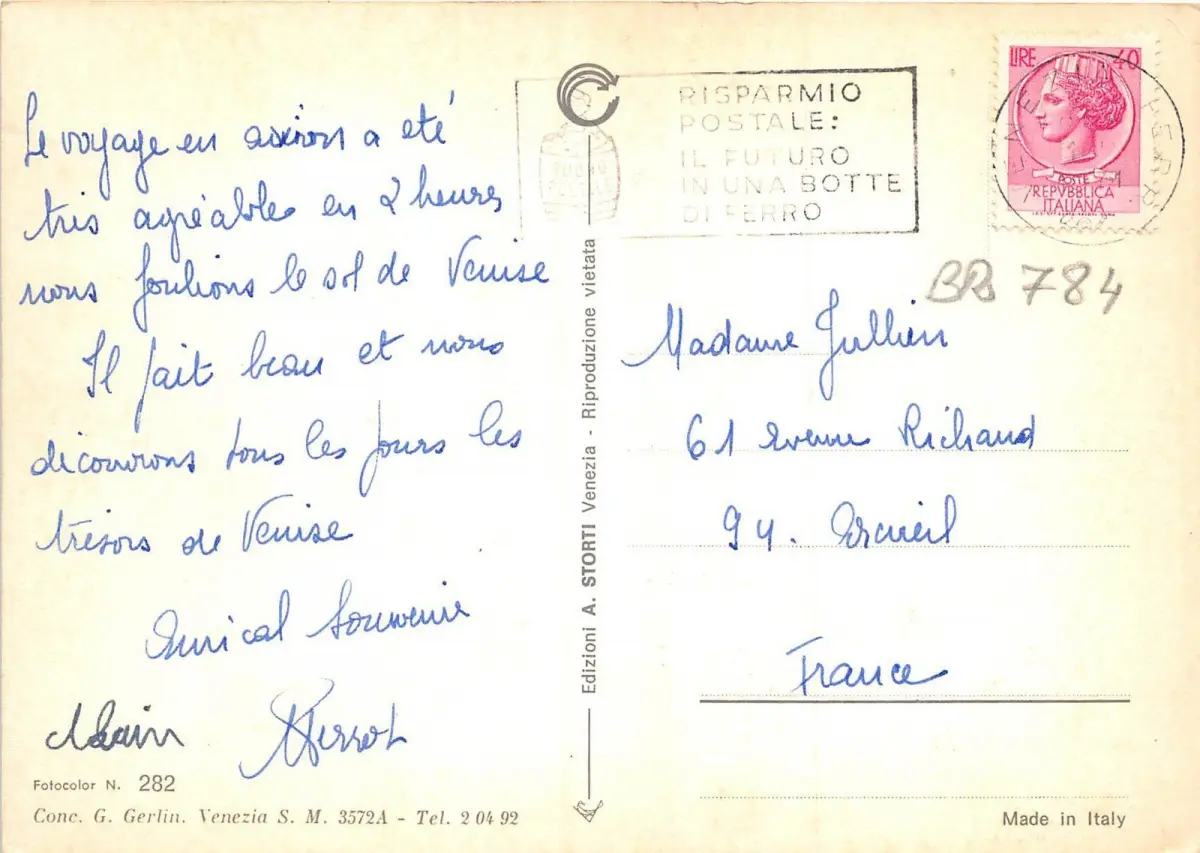 Le voyage en avion a eté
très agréable en 2 heures
nous foulions le sol de Venise
Il fait beau et nous
découvrons tous les jours les
trésors de Venise
Amical Souvenir
Alain Perrot
Fotocolor N. 282
Conc. G. Gerlin. Venezia S. M. 3572A - Tel. 2 04 92
Edizioni A. STORTI Venezia - Riproduzione vietata
BUONO
POSTALE
RISPARMIO
POSTALE:
IL FUTURO
IN UNA BOTTE
DI FERRO
LIRE 40
POSTE
REPVBBLICA
ITALIANA
VENEZIA FERR
BRs 784
Madame Jullien
61 avenue Richaud
94. Arcueil
France
Made in Italy